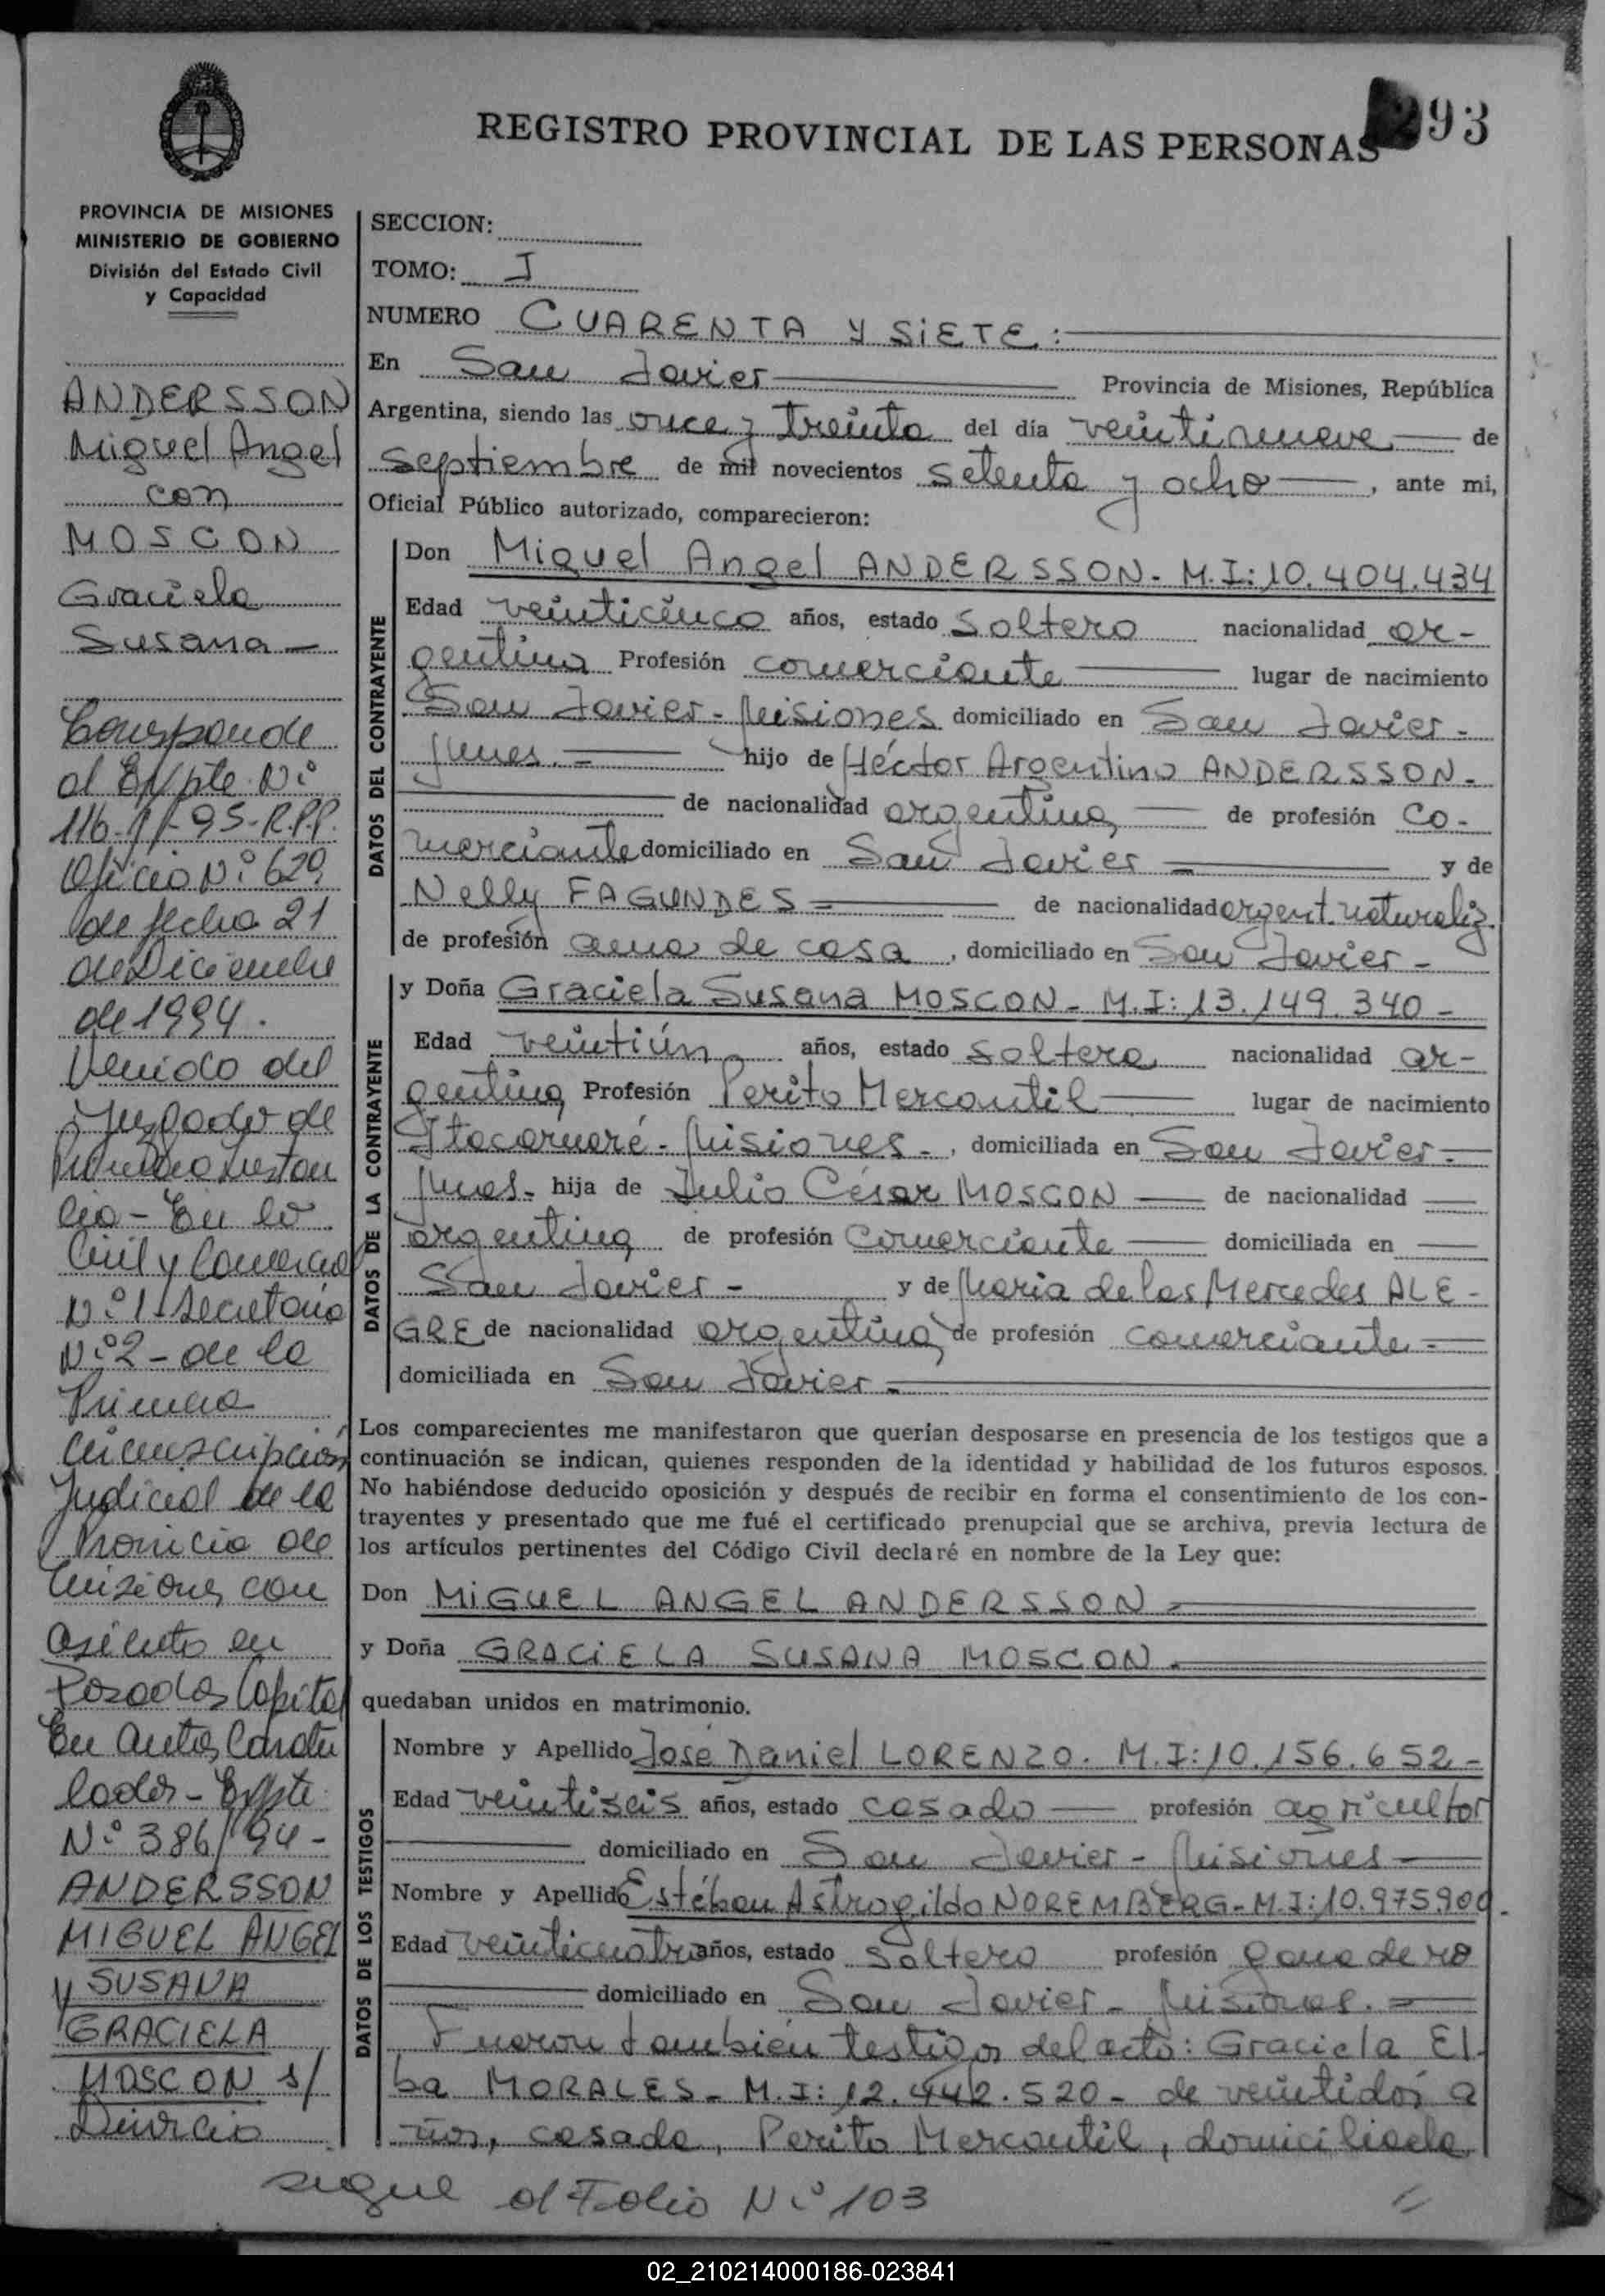 REGISTRO PROVINCIAL DE LAS PERSONAS
93
PROVINCIA DE MISIONES
MINISTERIO DE GOBIERNO
División del Estado Civil
y Capacidad
ANDERSSON
Miguel Angel
con
MOSCON
Graciela
Susana -
Corresponde
al Expte Nº
116- -95-R.P.P.
Oficio Nº 629
de fecha 21
de Diciembre
de 1994.
Venido del
Juzgado de
Primera Instan
cia - En lo
Civil y Comercial
Nº 1 - Secretaria
Nº 2 - de la
Primera
Circunscripción
Judicial de la
Provincia de
Misiones con
asiento en
Posadas Capital
En autos Caratu
lados - Expte
Nº 386/94 -
ANDERSSON
MIGUEL ANGEL
y SUSANA
GRACIELA
MOSCON s/
Divorcio
SECCION:
TOMO: I
NUMERO CUARENTA Y SIETE:
En San Javier Provincia de Misiones, República
Argentina, siendo las once y treinta del día veintinueve de
septiembre de mil novecientos setenta y ocho, ante mi,
Oficial Público autorizado, comparecieron:
DATOS DEL CONTRAYENTE
Don Miguel Angel ANDERSSON- M.I: 10.404.434
Edad veinticinco años, estado soltero nacionalidad ar-
gentina Profesión comerciante lugar de nacimiento
San Javier - Misiones domiciliado en San Javier -
hijo de Héctor Argentino ANDERSSON-
de nacionalidad argentina de profesión co-
merciante domiciliado en San Javier y de
Nelly FAGUNDES de nacionalidad argent. naturaliz.
de profesión ama de casa, domiciliado en San Javier -
DATOS DE LA CONTRAYENTE
y Doña Graciela Susana MOSCON - M.I: 13.149.340 -
Edad veintiún años, estado soltera nacionalidad ar-
gentina Profesión Perito Mercantil lugar de nacimiento
Itacaruaré - Misiones -, domiciliada en San Javier -
hija de Julio César MOSCON de nacionalidad
argentina de profesión comerciante domiciliada en
San Javier - y de Maria de las Mercedes ALE-
GRE de nacionalidad argentina de profesión comerciante -
domiciliada en San Javier -
Los comparecientes me manifestaron que querían desposarse en presencia de los testigos que a
continuación se indican, quienes responden de la identidad y habilidad de los futuros esposos.
No habiéndose deducido oposición y después de recibir en forma el consentimiento de los con-
trayentes y presentado que me fué el certificado prenupcial que se archiva, previa lectura de
los artículos pertinentes del Código Civil declaré en nombre de la Ley que:
Don MIGUEL ANGEL ANDERSSON -
y Doña GRACIELA SUSANA MOSCON -
quedaban unidos en matrimonio.
DATOS DE LOS TESTIGOS
Nombre y Apellido José Daniel LORENZO. M.I: 10.156.652 -
Edad veintiseis años, estado casado profesión agricultor
domiciliado en San Javier - Misiones
Nombre y Apellido Estéban Astrogildo NOREMBERG - M.I: 10.975.900.
Edad veinticuatro años, estado soltero profesión ganadero
domiciliado en San Javier - Misiones. -
Fueron también testigos del acto: Graciela El-
ba MORALES - M.I: 12.442.520 - de veintidós a
ños, casada, Perito Mercantil, domiciliada
sigue al Folio Nº 103
02_210214000186-023841